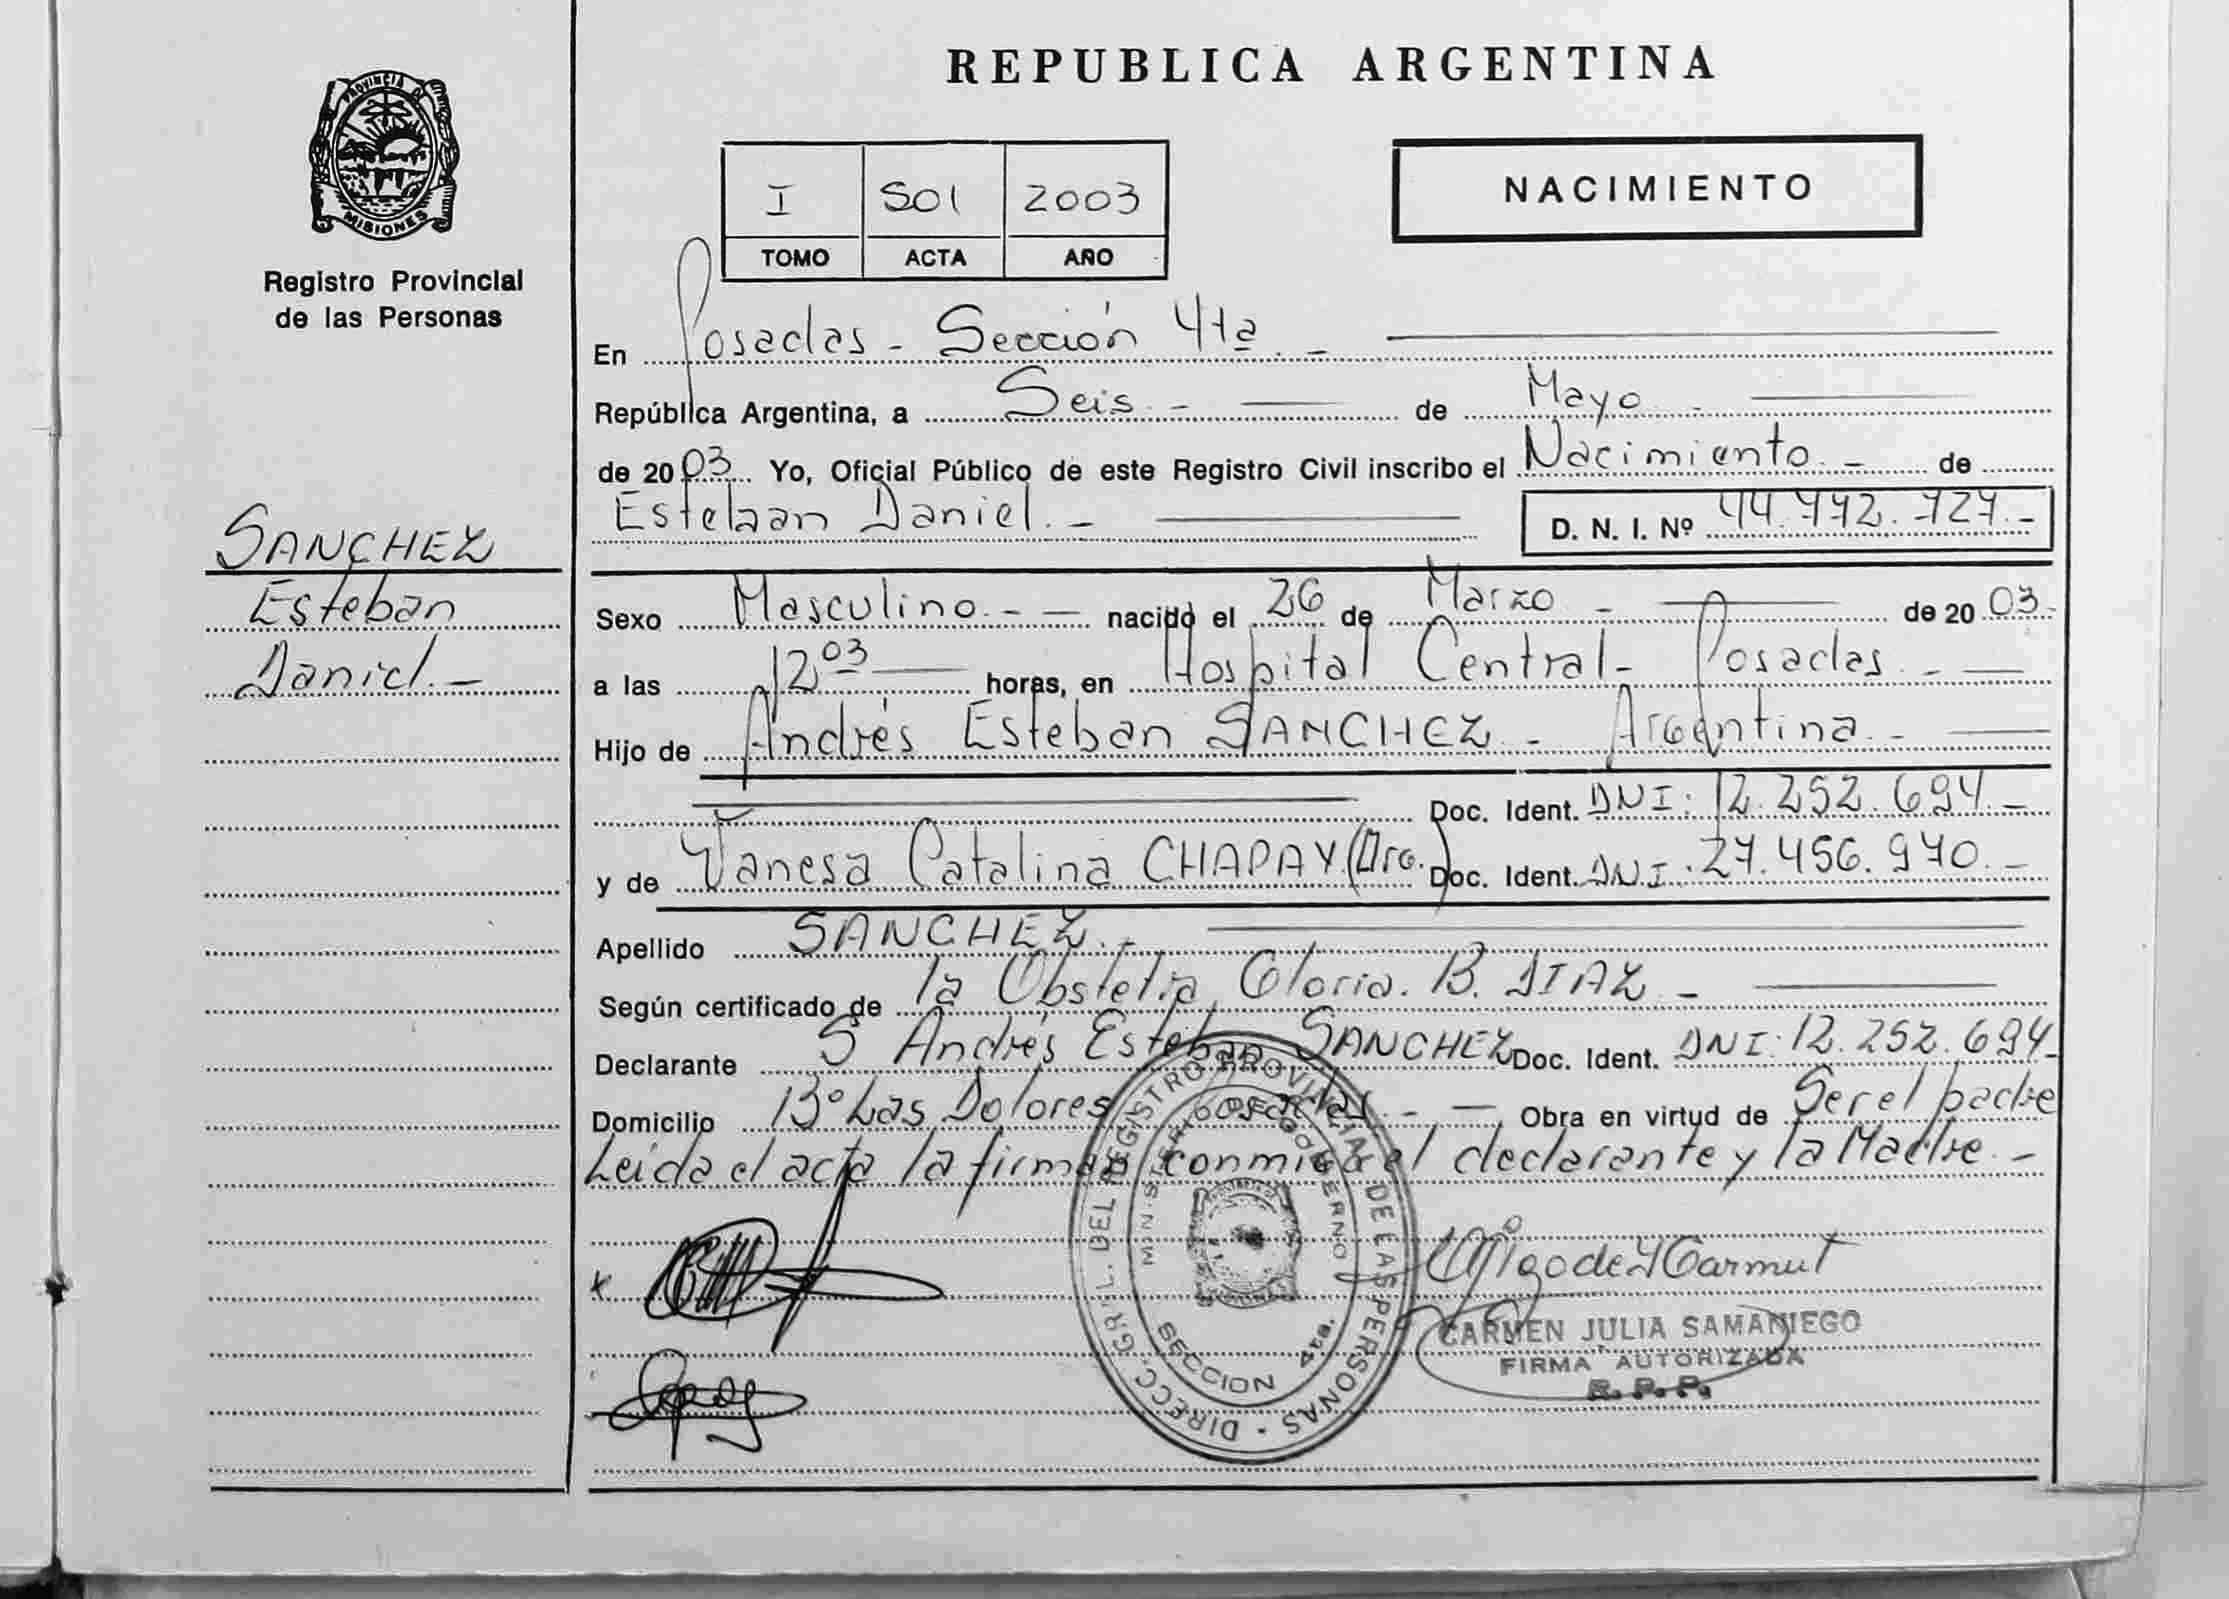 REPUBLICA ARGENTINA
PROVINCIA DE
MISIONES
Registro Provincial
de las Personas
I 501 2003
TOMO ACTA AÑO
NACIMIENTO
En Posadas - Sección 4ta. -
República Argentina, a Seis. - de Mayo. -
de 2003 Yo, Oficial Público de este Registro Civil inscribo el Nacimiento. - de
Esteban Daniel. - D. N. I. Nº 44.772.727.-
SANCHEZ
Esteban
Daniel. -
Sexo Masculino. - - nacido el 26 de Marzo - de 2003.-
a las 12 03 horas, en Hospital Central - Posadas. -
Hijo de Andrés Esteban SANCHEZ - Argentina. -
Doc. Ident. DNI: 12.252.694. -
y de Vanesa Catalina CHAPAY (Arg.) Doc. Ident. DNI: 27.456.970. -
Apellido SANCHEZ. -
Según certificado de la Obstetra Gloria. B. DIAZ -
Declarante S Andrés Esteban SANCHEZ Doc. Ident. DNI: 12.252.694 -
Domicilio Bº Las Dolores Posadas. - - Obra en virtud de Ser el padre
Leida el acta la firman conmigo el declarante y la Madre. -
DIRECC. GRL. DEL REGISTRO PROVINCIAL DE LAS PERSONAS
MINISTERIO DE GOBIERNO
SECCION 4ta.
CARMEN JULIA SAMANIEGO
FIRMA AUTORIZADA
R. P. P.